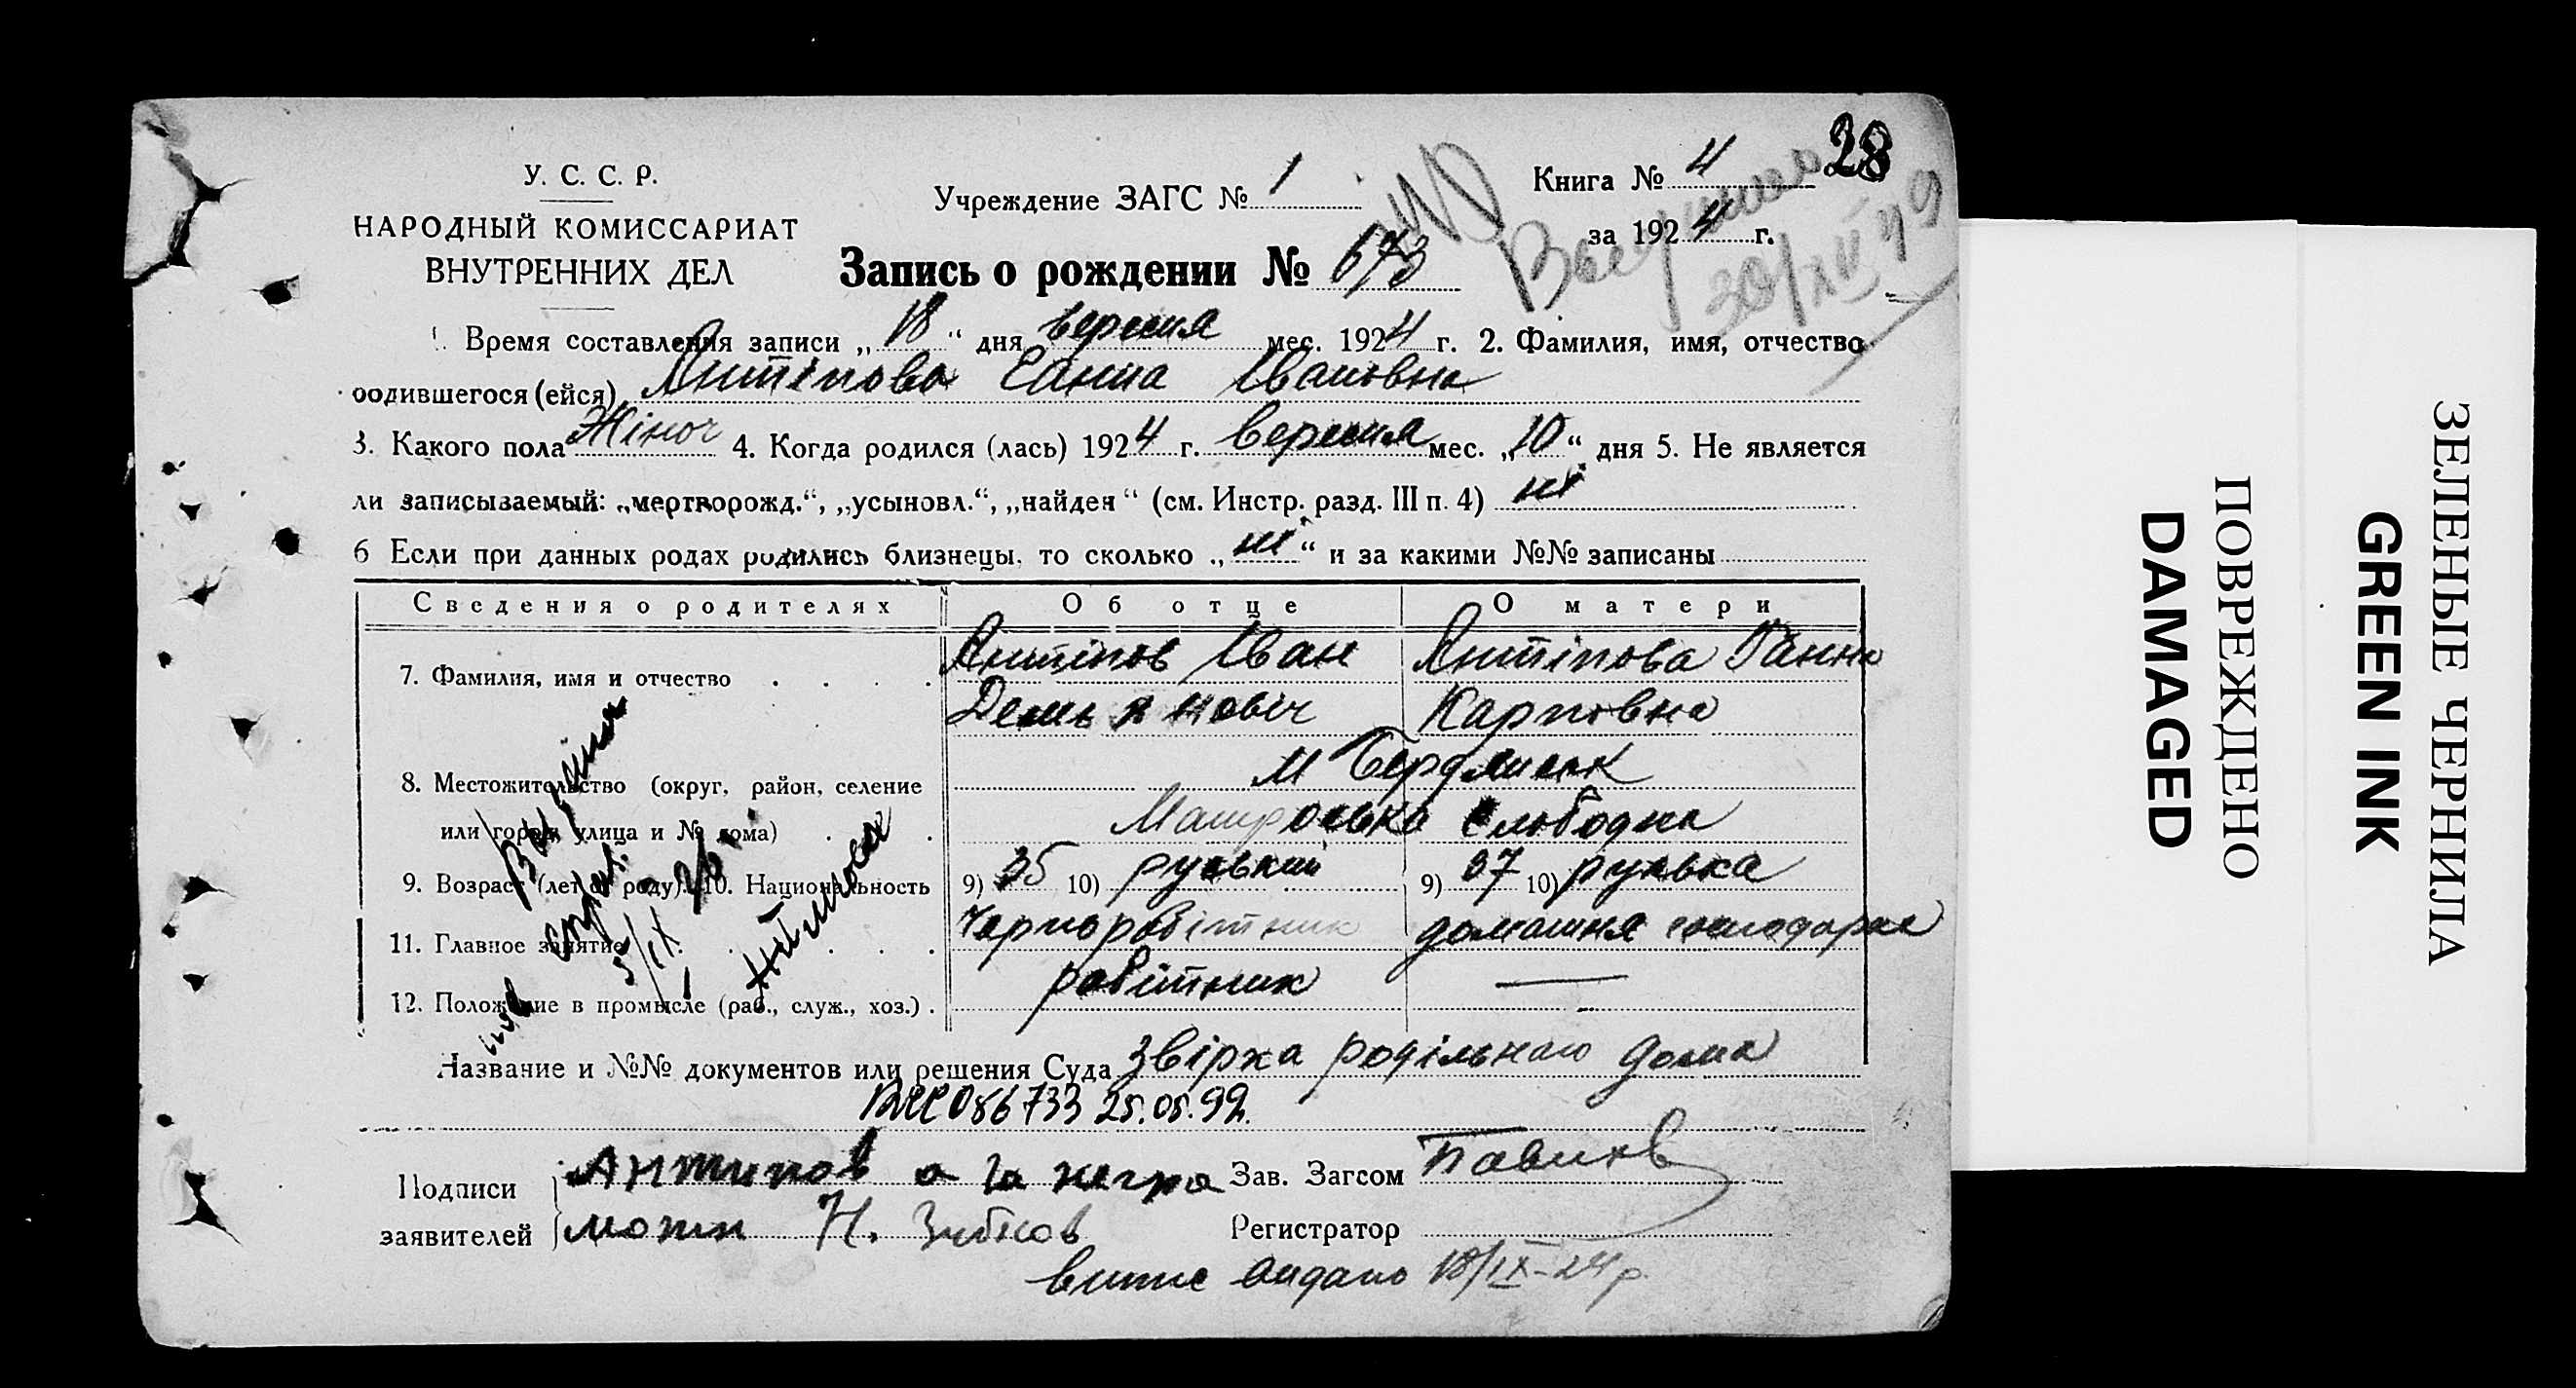 28
У. С. С. Р.
НАРОДНЫЙ КОМИССАРИАТ
ВНУТРЕННИХ ДЕЛ
Учреждение ЗАГС № 1
Книга № 4
за 1924 г.
Запись о рождении № 673
30/XII 49
1. Время составления записи „18“ дня вересня мес. 1924 г. 2. Фамилия, имя, отчество
родившегося (ейся) Антіпова Ганна Івановна
3. Какого пола Жіноч 4. Когда родился (лась) 1924 г. вересня мес. „10“ дня 5. Не является
ли записываемый: „мертворожд.“, „усыновл.“, „найден“ (см. Инстр. разд. III п. 4) ні
6 Если при данных родах родились близнецы, то сколько „ні“ и за какими №№ записаны
Сведения о родителях Об отце О матери
7. Фамилия, имя и отчество Антіпов Іван Антіпова Ганна
Демьянович Карповна
8. Местожительство (округ, район, селение м Бердянськ
или город, улица и № дома) Матроська слободка
9. Возраст (лет от роду). 10. Национальность 9) 35 10) руський 9) 37 10) руська
11. Главное занятие Чорноробітник домашня господарка
12. Положение в промысле (раб., служ., хоз.) робітник —
5/IX
Название и №№ документов или решения Суда Звірка родільного дома
086733 25.05.92.
Подписи Антипов Зав. Загсом
заявителей Регистратор
витяг видано 18/IX-24 р.
ЗЕЛЕНЫЕ ЧЕРНИЛА
GREEN INK
ПОВРЕЖДЕНО
DAMAGED